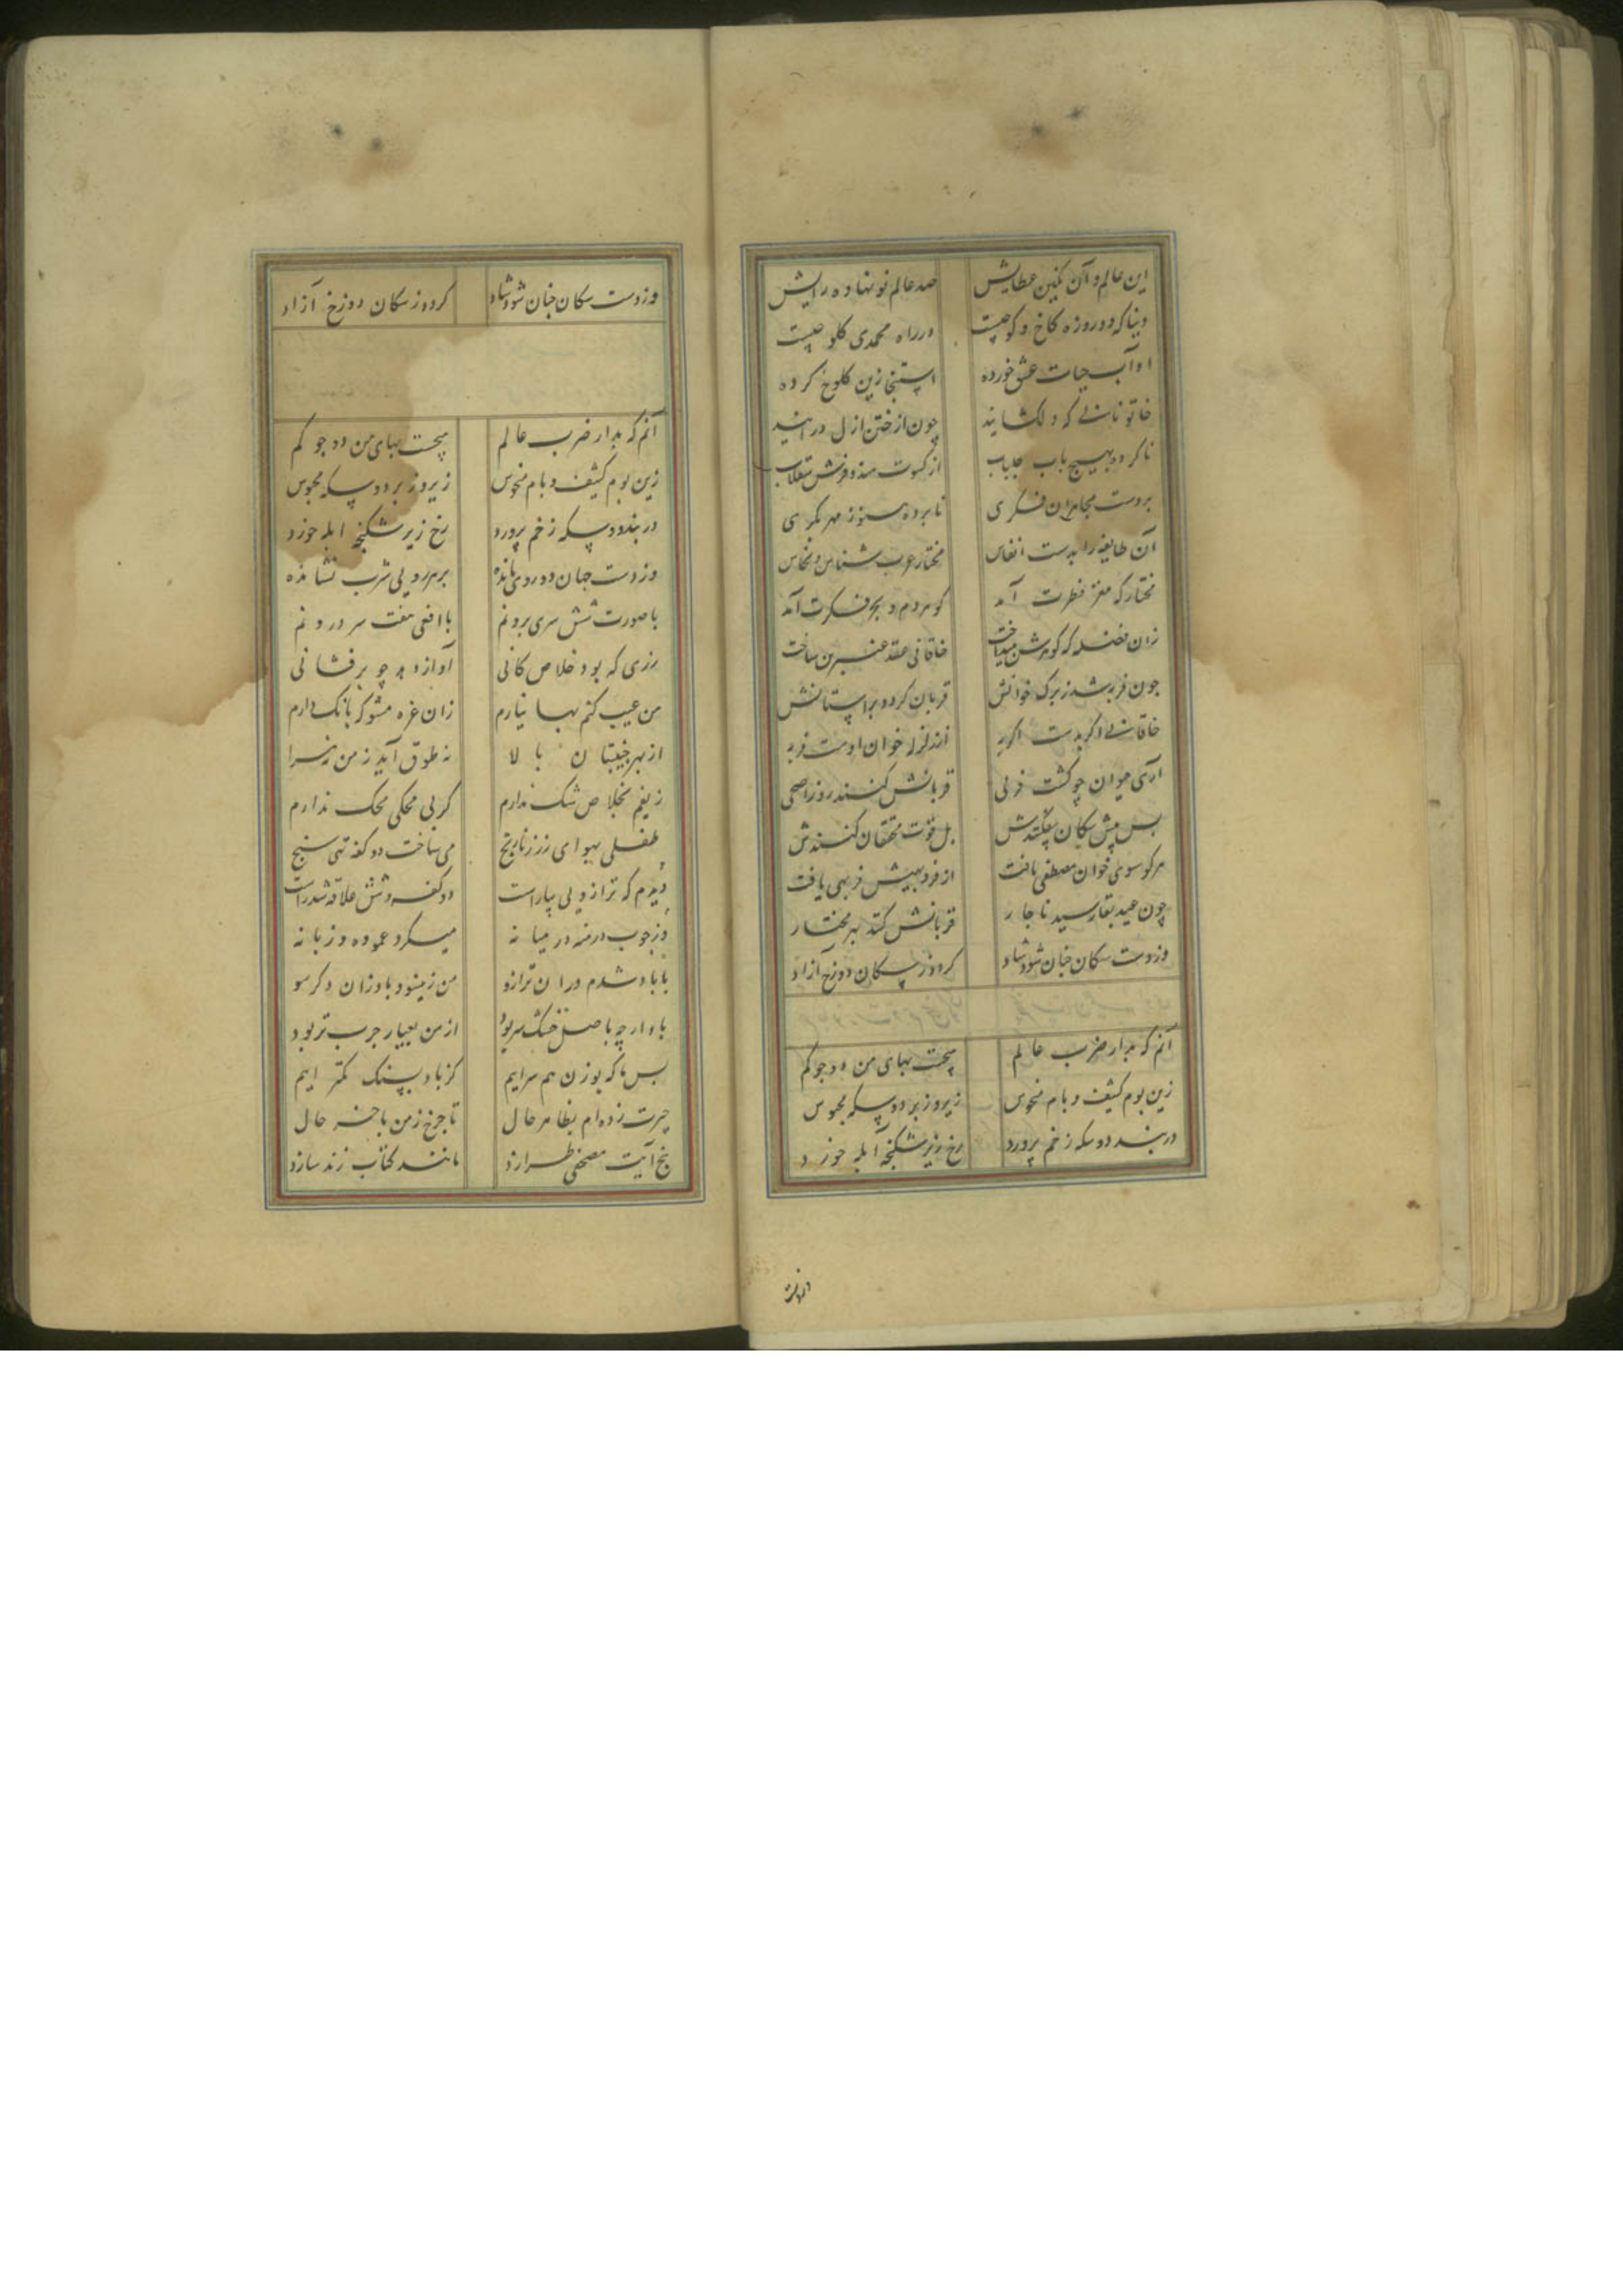 این عالم و آن نگین عطایش صد عالم نو نهاده رایش
دنیا که دو روزه کاخ و کوچیست در راه محمدی کلوچیست
او آب حیات عشق خورده استنجا زین کلوخ کرده
خاتونانی که دلگشایند چون از ختن ازل درآیند
ناکرده بهیچ باب جلباب از کسوت هند و فرش سقلاب
بر دست مجاهران فکری نابرده هنوز مهر بکری
آن طایفه را بدست انفاس مختار عرب شناس و نخاس
مختار که مغز فطرت آمد گوهر دم و بحر فکرت آمد
زان فضله که گوهرش میداخت خاقانی عقد عنبرین ساخت
چون فربه شد ز برگ خوانش قربان کردد بر استانش
خاقانی اگر بدست اگر به از نزل خوان اوست فربه
آری حیوان چو گشت فربی قربانش کنند روز اضحی
بس پیش سگان نیفکندش بل قوت محققان کنندش
هر کو سوی خوان مصطفی تافت از فر دبهیش فربهی یافت
چون عید بقا رسید ناچار قربانش کند بهر مختار
وز دست سکان جنان شود شاد گردد ز سکان دوزخ آزاد
آنم که بدار ضرب عالم هیچست بهای من دو جو کم
زین بوم کثیف و بام منحوس زیر و زبر دو سکه محبوس
در بند دو سکه زخم پرورد رخ زیر شکنجه آبله خورد
وز دست
وز دست سکان جنان شود شاد گردد ز سکان دوزخ آزاد
آنم که بدار ضرب عالم هیچست بهای من دو جو کم
زین بوم کثیف و بام منحوس زیر و زبر دو سکه محبوس
در بند دو سکه زخم پرورد رخ زیر شکنجه ابله خورد
وز دست جهان دو روی مانده بر هر رویی شرب نشانده
با صورت شش سری برونم با افعی هفت سر درونم
زری که بود خلاص کانی آواز دهد چو برفشانی
من عیب کنم بها نیارم زان غره مشو که بانگ دارم
از بهر جنیبتان بالا نه طوق آید ز من نه هرا
زیفم بخلاص شک ندارم کز بی محکی محک ندارم
طفلی بهوای زر ز نارنج می ساخت دو کفه تهی سنج
دیدم که ترازویی بیاراست دو کفه و شش علاقه شد راست
وز چوب درمنه در میانه میکرد عموده و زبانه
با باد شدم در ان ترازو من زینسو و باد زان دگر سو
باد ار چه باصل خشک سر بود از من بعیار چرب تر بود
بس ما که بوزن هم سراییم کز باد بسنگ کمتر آییم
حیرت زده ام بظاهر حال تا چرخ ز من باخر حال
پنج آیت مصحفی طرازد مانند کتاب زند سازد